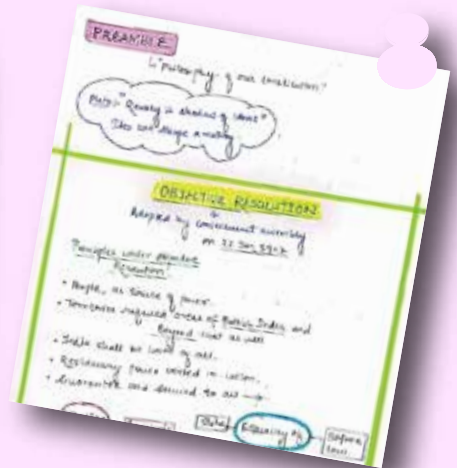 PREAMBLE
"philosophy of our constitution"
Plato:- "Reality is shadow of ideas"
Idea can shape a reality
OBJECTIVE RESOLUTION
Adopted by constituent assembly
on 22 Jan 1947
Principles under objective
Resolution
• People, as source of power.
• Territories required areas of British India and
Beyond that as well
• India shall be land of all.
• Residuary power vested in union.
• Guarantee and secured to all →
Equality of
Before
law